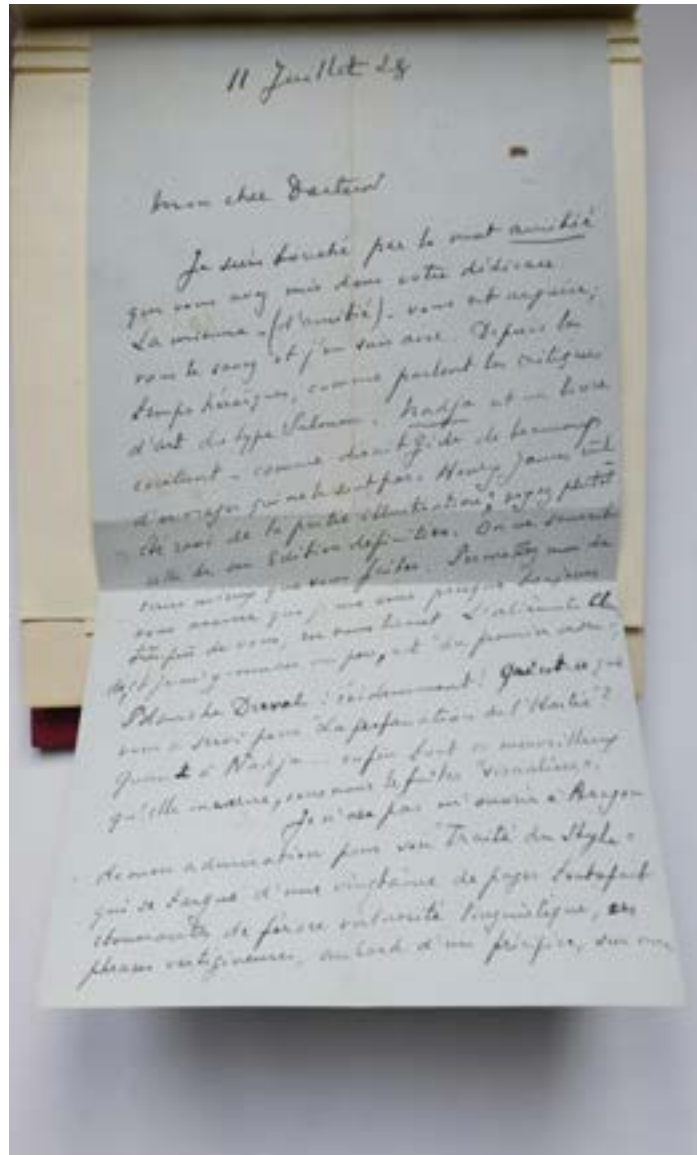 11 Juillet 28
mon cher
Je suis touché par le mot amitié
que vous avez mis dans votre dédicace
La mienne - (d'amitié) - vous est acquise,
vous le savez et j'en suis aise. Depuis les
temps héroïques, comme parlent les critiques
d'art du type Salmon. Nadja est un livre
excitant - comme disait Gide de beaucoup
d'ouvrages qui ne le sont pas. Henry James
de la partie illustration; voyez plutôt
celle de son Edition définitive. On ne saurait
mieux que vous faites. Permettez moi de
vous que je me presque toujours
très près de vous, en vous lisant. L'
Blanche Derval : évidemment! Qui est ce qui
vous a servi pour "La profanation de l'Hostie"?
Quant à Nadja ... enfin tout ce merveilleux
qu'elle , vous nous le faites "
Je n'ose pas m'ouvrir à Aragon
de mon admiration pour son Traité du Style -
qui se targue d'une vingtaine de pages tout à fait
étonnantes de féroce linguistique, en
phrases vertigineuses, au bord d'un précipice, sur une